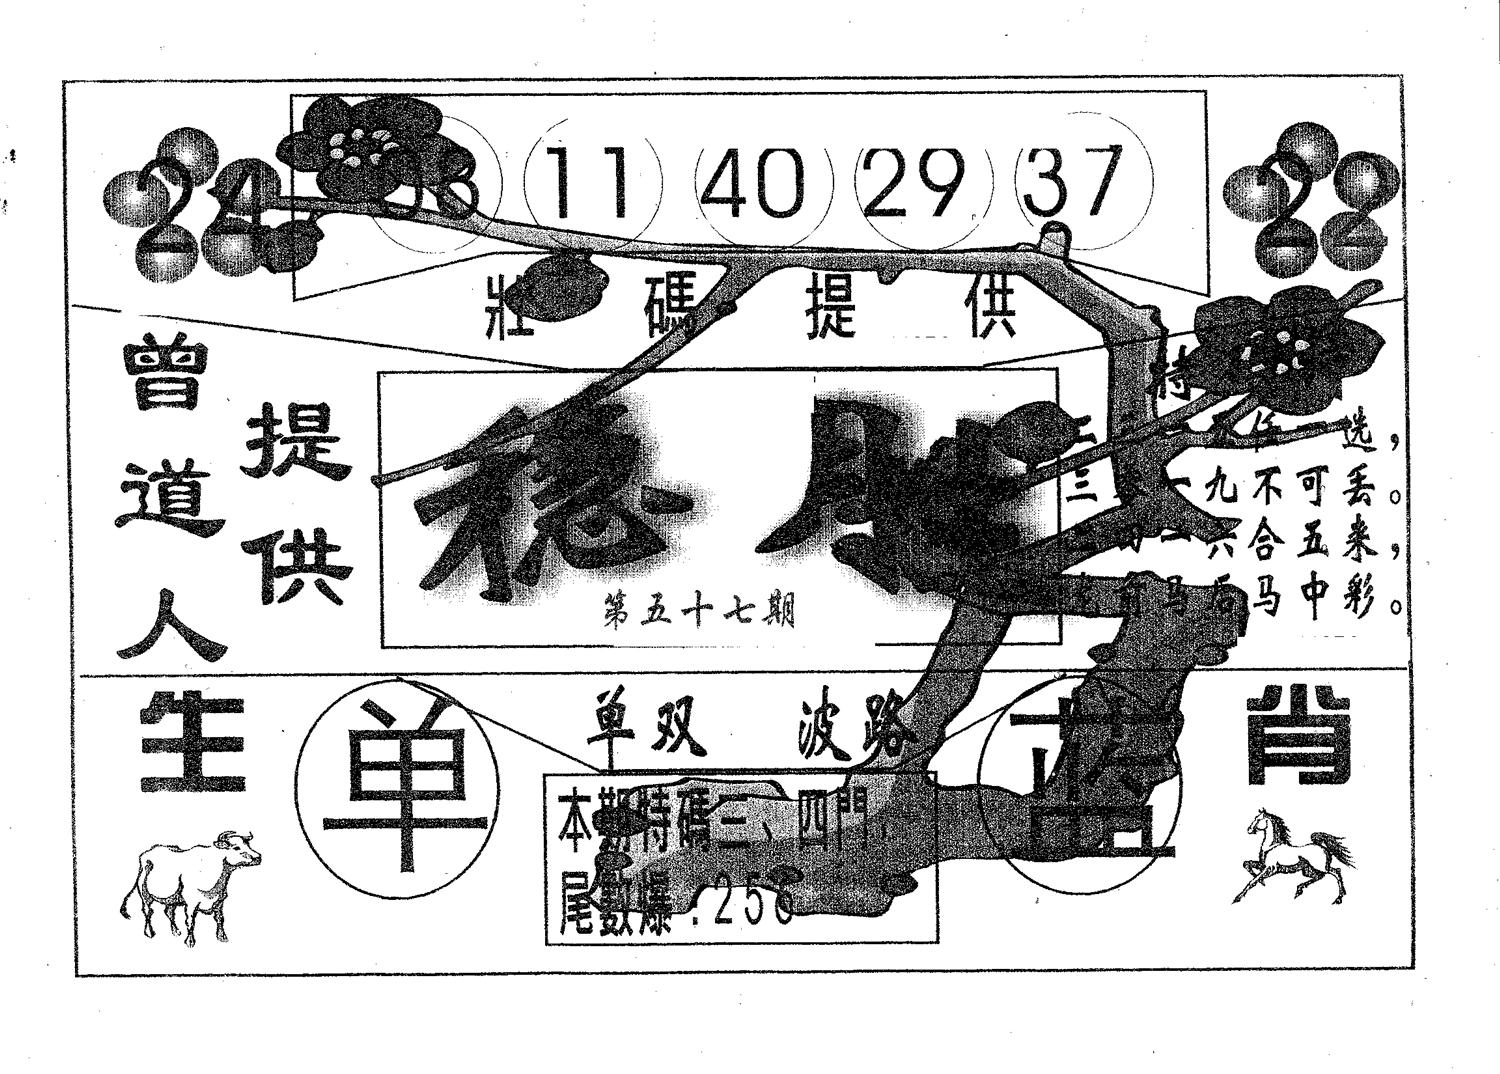 24 11 40 29 37 22
壯碼提供
曾道人
提供
稳胜
第五十七期
特
选，
三 一九不可丢。
一六合五来，
马后马中彩。
生肖
单
单双 波路
蓝
本期特碼三、四門
尾數爆:256